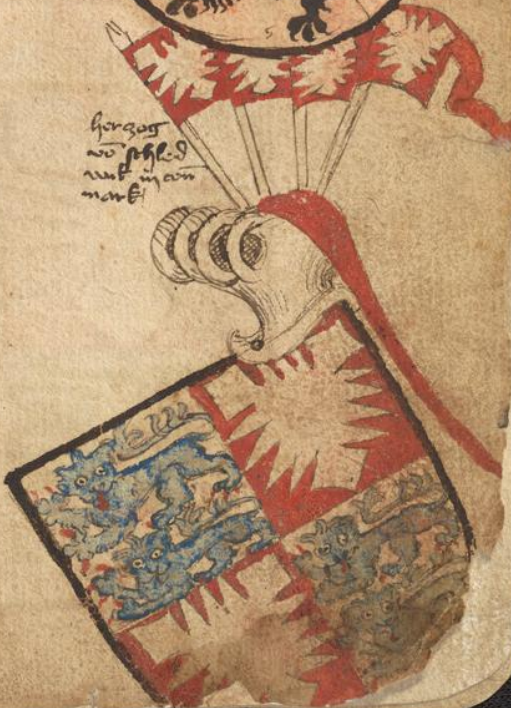 herzog
vō schleß
wik in ten
mark